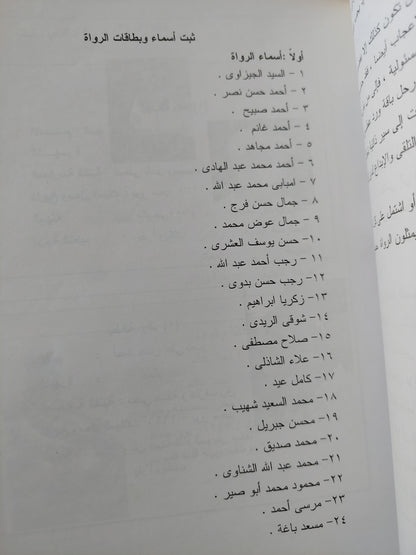 ثبت أسماء وبطاقات الرواة
أولاً :أسماء الرواة
١ - السيد الجيزاوى .
٢ - أحمد حسن نصر .
٣ - أحمد صبيح .
٤ - أحمد غانم .
٥ - أحمد مجاهد .
٦ - أحمد محمد عبد الهادى .
٧ - امبابى محمد عبد الله .
٨ - جمال حسن فرج .
٩ - جمال عوض محمد .
١٠- حسن يوسف العشرى .
١١ - رجب أحمد عبد الله .
١٢ - رجب حسن بدوى .
١٣- زكريا ابراهيم .
١٤- شوقى الريدى .
١٥- صلاح مصطفى .
١٦- علاء الشاذلى .
١٧- كامل عيد .
١٨ - محمد السعيد شهيب .
١٩- محسن جبريل .
٢٠- محمد صديق .
٢١- محمد عبد الله الشناوى .
٢٢- محمود محمد أبو صير .
٢٣- مرسى أحمد .
٢٤- مسعد باغة .
تكون كذلك
عجائب أيضا
رحل باقة
التلقى والإبداع
أو اشتمل على
يمثلون الرواة